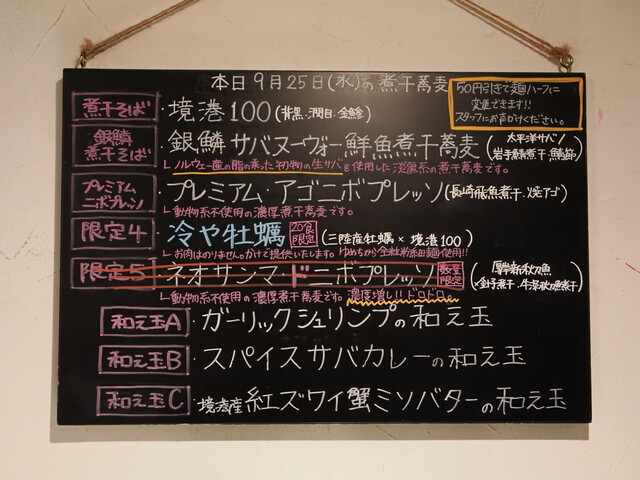 本日9月25日(水)の煮干蕎麦
50円引きで麺ハーフに
変更できます!!
スタッフにお声がけください。
煮干そば ・境港100(背黒.潤目.金鯵)
銀鱗煮干そば ・銀鱗サバヌーヴォー鮮魚煮干蕎麦(太平洋サバ/岩手鯖煮干.鯖節)
└ノルウェー産の脂の乗った初物の生サバを使用した淡麗系の煮干蕎麦です。
プレミアムニボプレッソ ・プレミアム・アゴニボプレッソ(長崎飛魚煮干.焼アゴ)
└動物系不使用の濃厚煮干蕎麦です。
限定4 ・冷や牡蠣 20食限定 (三陸産牡蠣×境港100)
└お肉はのりません。かけで提供いたします。ゆめちから全粒粉添田麺使用!!
限定5 ・ネオサンマードニボプレッソ 数量限定
└動物系不使用の濃厚煮干蕎麦です。濃度増し!!ドロドロ。
和え玉A ・ガーリックシュリンプの和え玉
和え玉B ・スパイスサバカレーの和え玉
和え玉C ・境港産紅ズワイ蟹ミソバターの和え玉